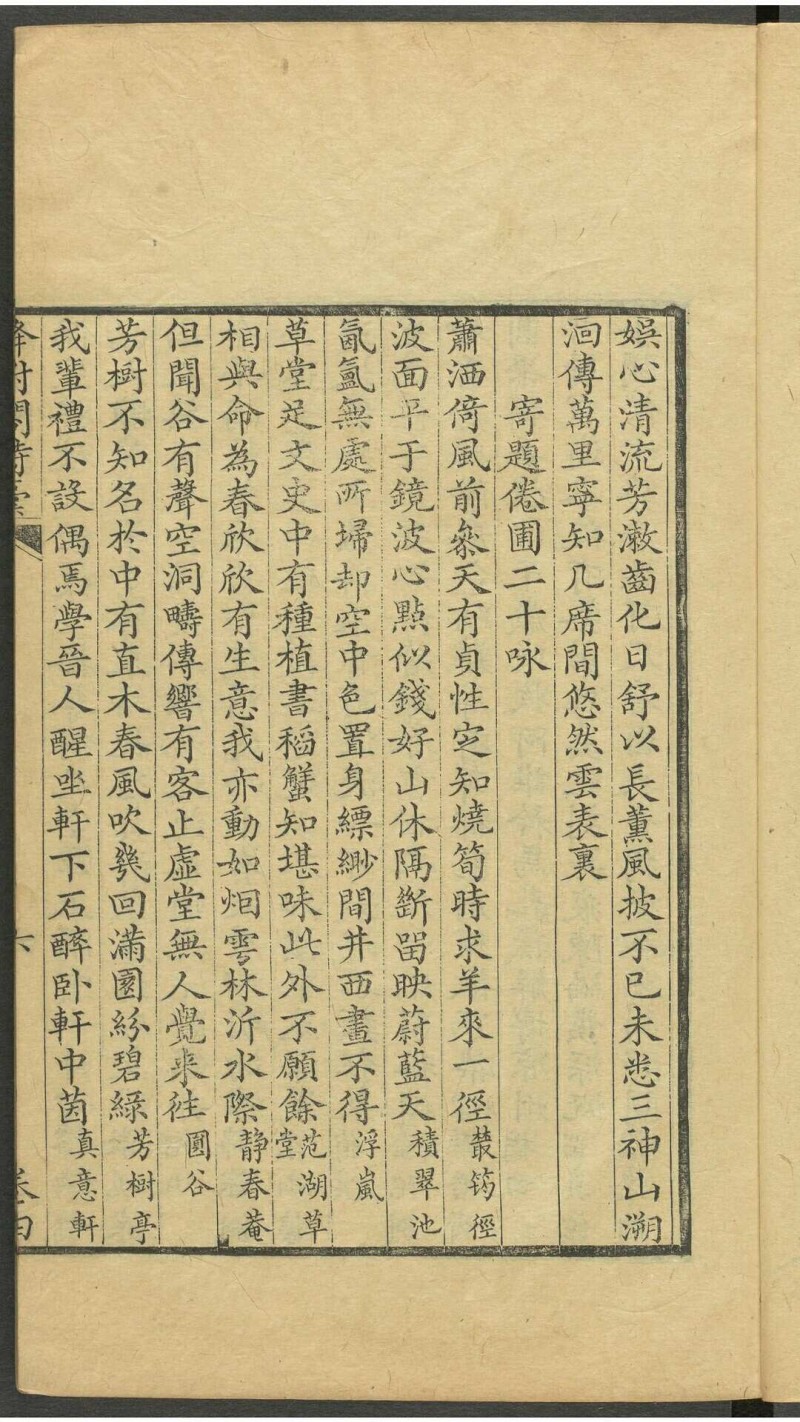 娛心清流芳漱齒化日舒以長薰風披不已未悉三神山溯
洄傳萬里寧知几席間悠然雲表裏
寄題倦圃二十咏
蕭洒倚風前叅天有貞性定知燒筍時求羊來一徑叢筠徑
波面平于鏡波心點似錢好山休隔斷畱映蔚藍天積翠池
氤氳無處所埽却空中色置身縹緲間井西畫不得浮嵐
草堂足文史中有種植書稻蟹知堪味此外不願餘范湖草堂
相與命為春欣欣有生意我亦動如烟雩林沂水際靜春菴
但聞谷有聲空洞疇傳響有客止虛堂無人覺来徃圓谷
芳樹不知名於中有直木春風吹幾回滿園紛碧緑芳樹亭
我輩禮不設偶焉學晉人醒坐軒下石醉卧軒中茵真意軒
六